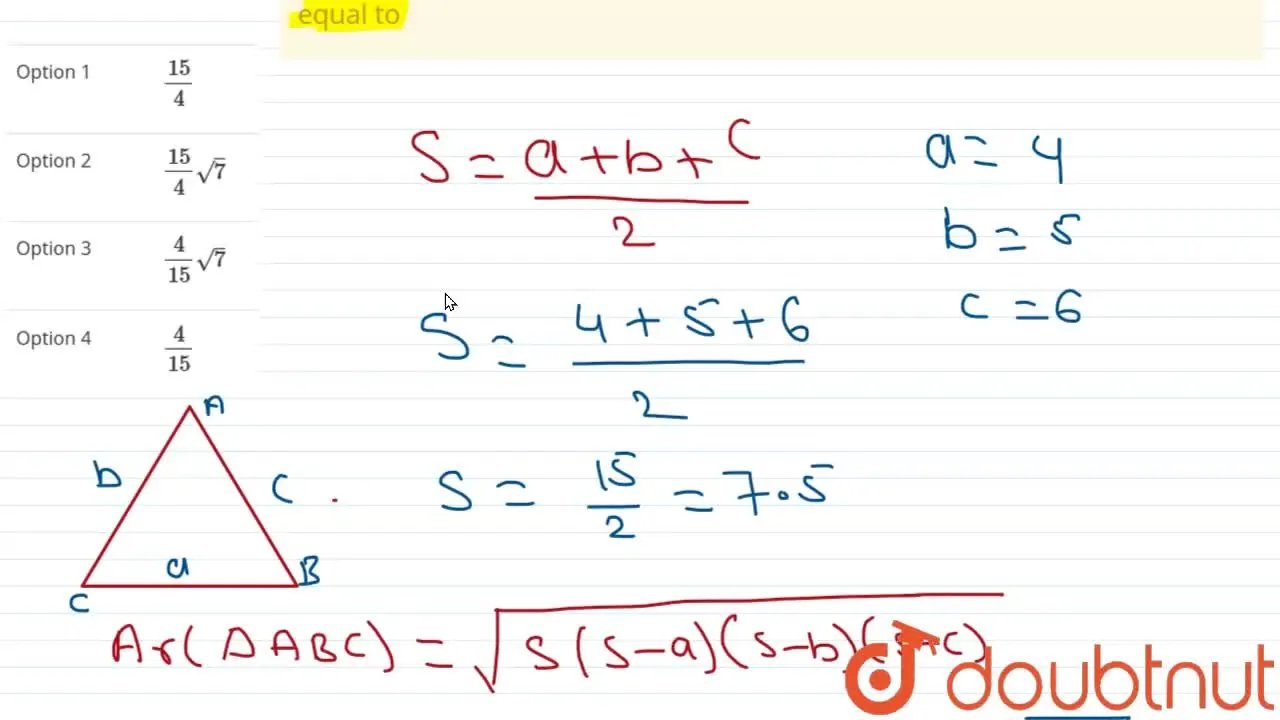 equal to
Option 1 15/4
Option 2 15/4 √7
Option 3 4/15 √7
Option 4 4/15
S = a+b+c/2
a = 4
b = 5
c = 6
S = 4+5+6/2
S = 15/2 = 7.5
A
b
c .
a
B
C
Ar(ΔABC) = √s(s-a)(s-b)(s-c)
doubtnut